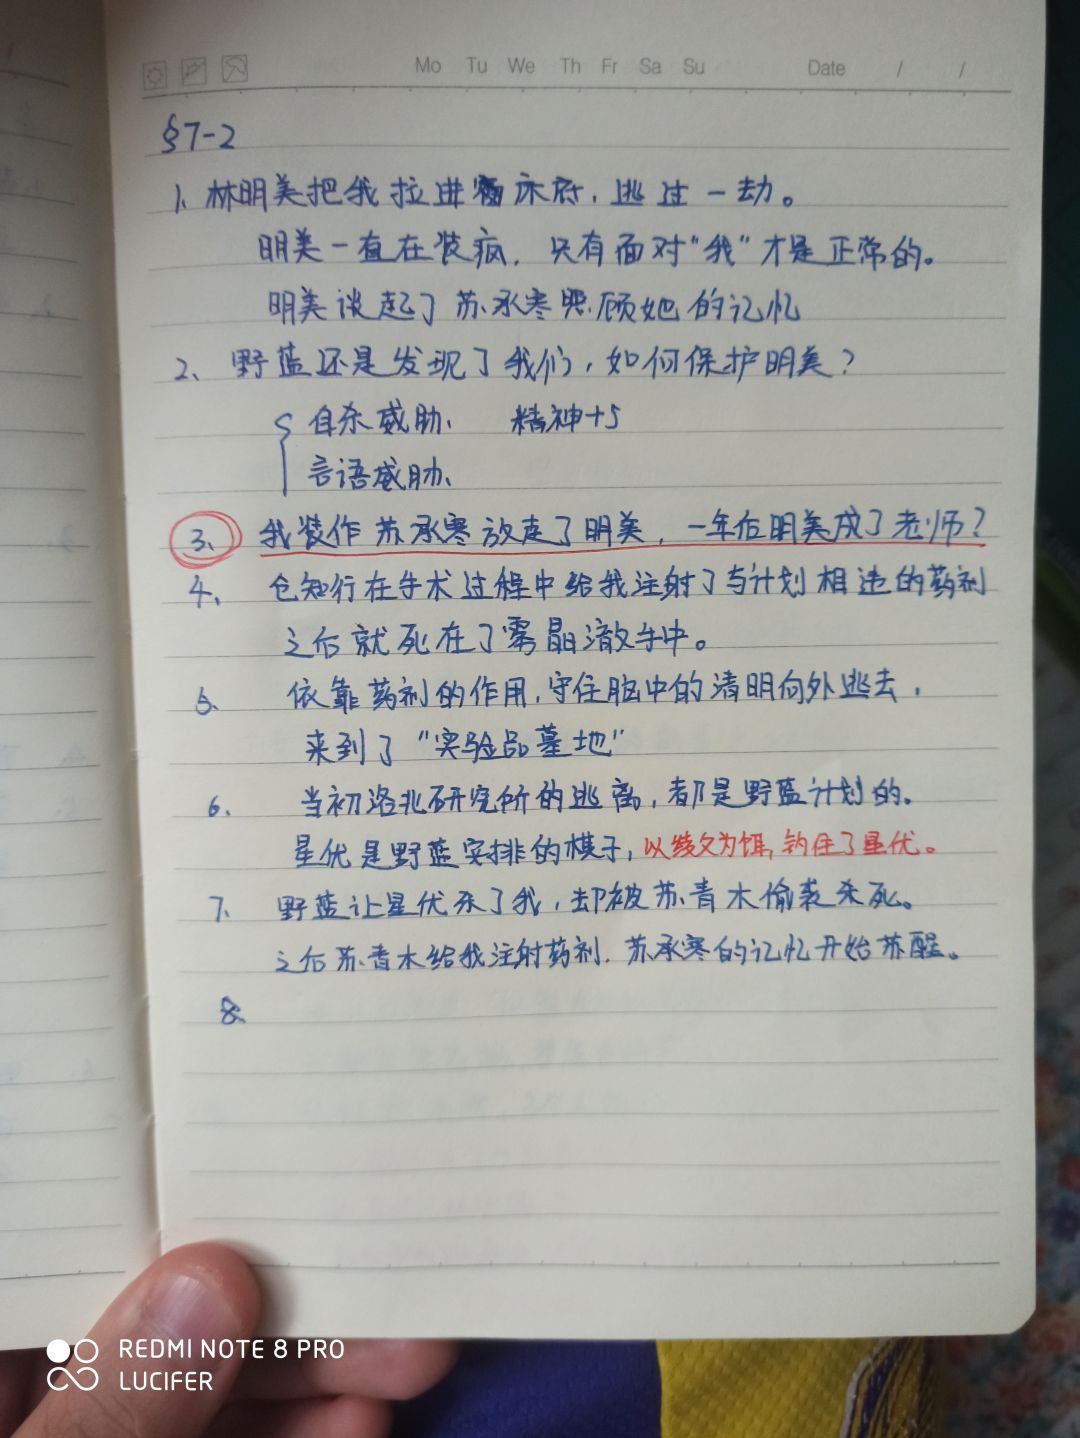 Mo Tu We Th Fr Sa Su Date / /
§7-2
1. 林明美把我拉进床底，逃过一劫。
明美一直在装疯，只有面对“我”才是正常的。
明美谈起了苏承寒照顾她的记忆
2、野蓝还是发现了我们，如何保护明美？
自杀威胁、 精神+5
言语威胁、
3、我装作苏承寒放走了明美，一年后明美成了老师？
4、仓知行在手术过程中给我注射了与计划相违的药剂
之后就死在了雾晶澈手中。
5、依靠药剂的作用，守住脑中的清明向外逃去，
来到了“实验品墓地”
6、当初洛北研究所的逃离，都是野蓝计划的。
星优是野蓝安排的棋子，以绫文为饵，钓住了星优。
7、野蓝让星优杀了我，却被苏青木偷袭杀死。
之后苏青木给我注射药剂，苏承寒的记忆开始苏醒。
8、
REDMI NOTE 8 PRO
LUCIFER